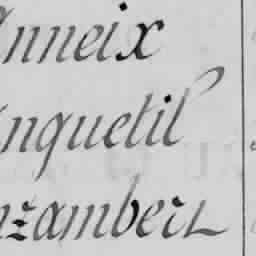 Anneix
Anquetil
nzambert